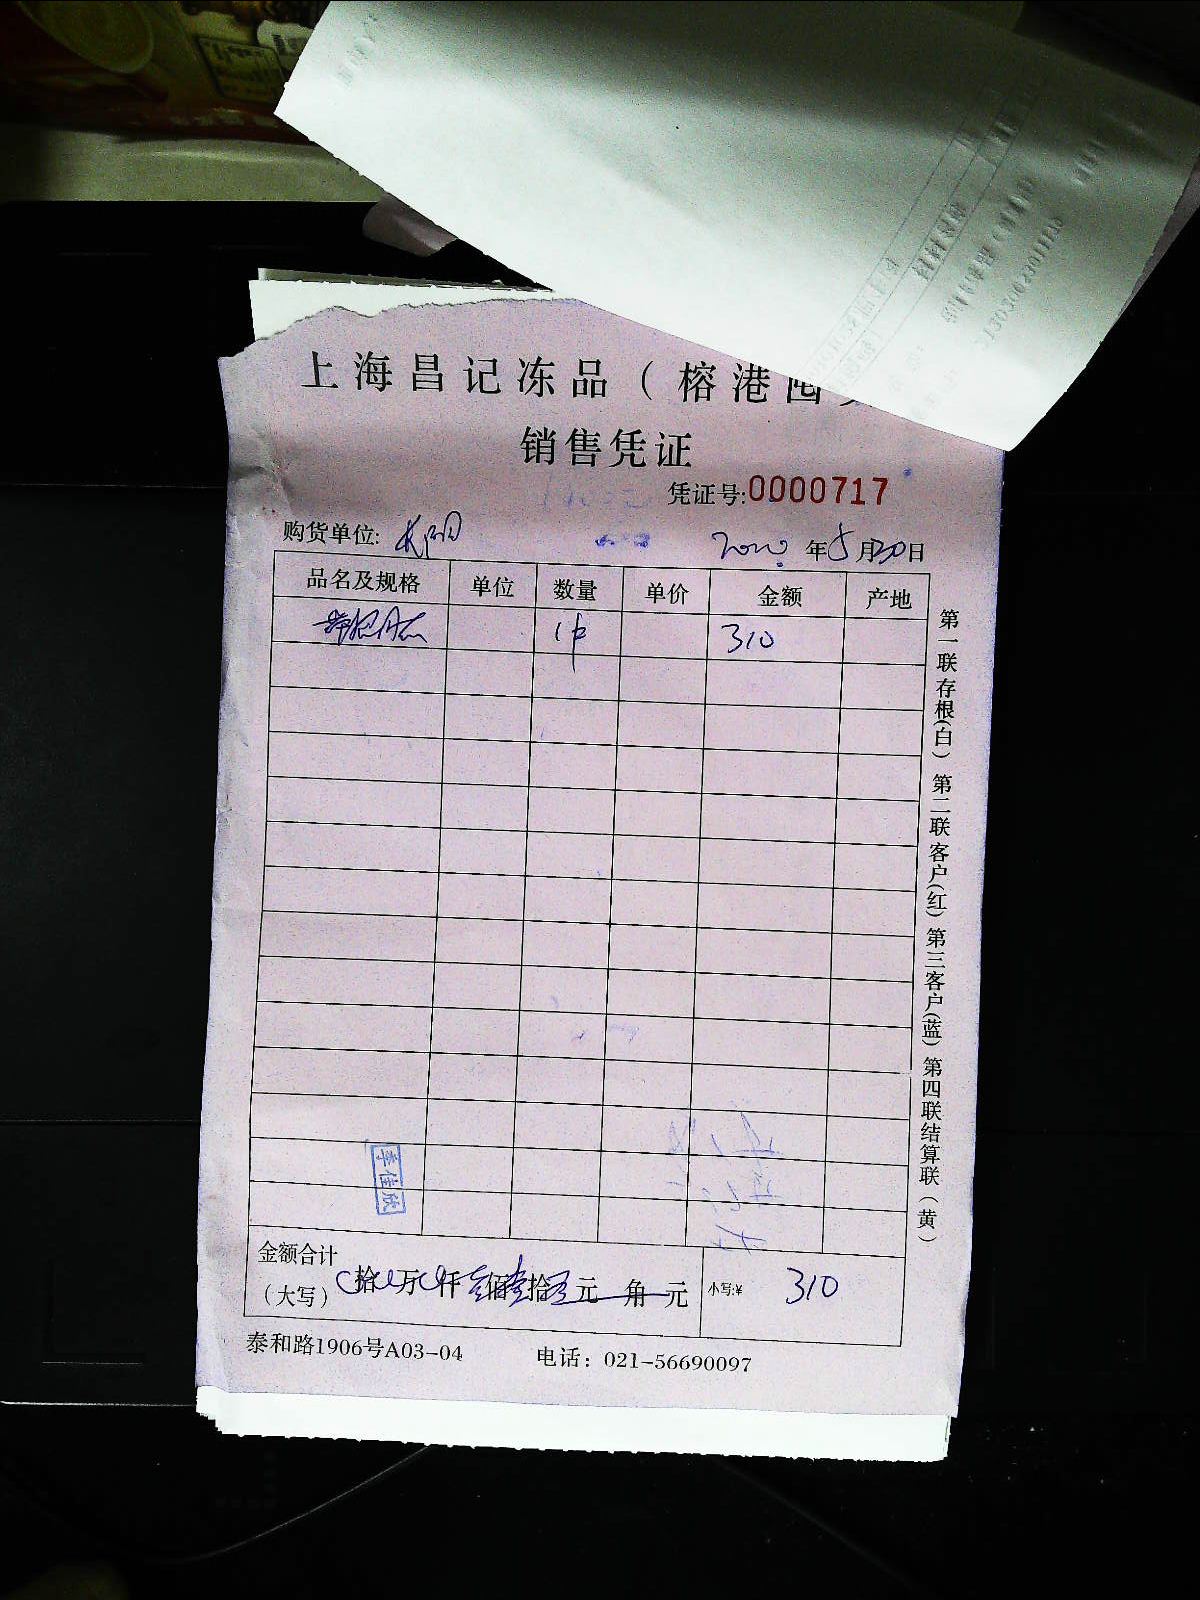 上海昌记冻品（榕港囤
销售凭证
凭证号:0000717
购货单位: 2020年5月20日
品名及规格 单位 数量 单价 金额 产地
1件 310
第一联存根(白) 第二联客户(红) 第三客户(蓝) 第四联结算联(黄)
李佳欣
金额合计
(大写) 拾 万 仟 佰 拾 元 角 元 小写:¥ 310
泰和路1906号A03-04 电话：021-56690097